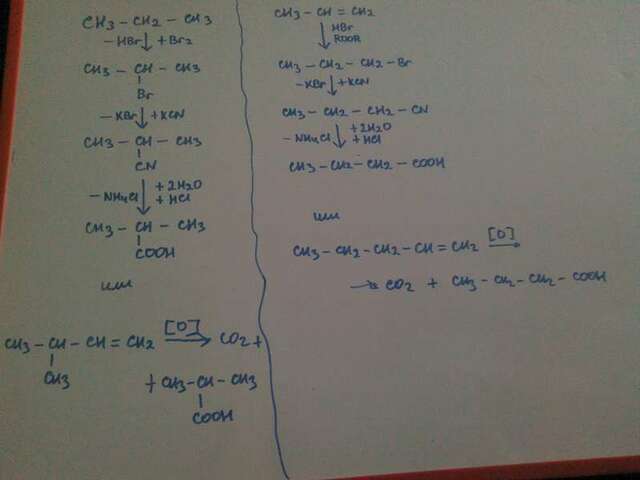 CH3 – CH2 – CH3
– HBr ↓ + Br2
CH3 – CH – CH3
|
Br
– KBr ↓ + KCN
CH3 – CH – CH3
|
CN
– NH4Cl ↓ + 2H2O
+ HCl
CH3 – CH – CH3
|
COOH
или
CH3 – CH – CH = CH2 [O] → CO2 +
|
CH3
+ CH3 – CH – CH3
|
COOH
CH3 – CH = CH2
↓ HBr
ROOR
CH3 – CH2 – CH2 – Br
– KBr ↓ + KCN
CH3 – CH2 – CH2 – CN
– NH4Cl ↓ + 2H2O
+ HCl
CH3 – CH2 – CH2 – COOH
или
CH3 – CH2 – CH2 – CH = CH2 [O] →
→ CO2 + CH3 – CH2 – CH2 – COOH